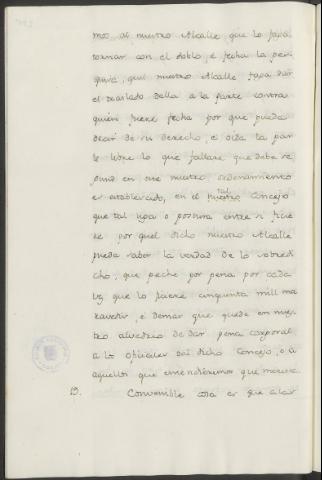 mos al nuestro Alcalle que lo faga
tornar con el doblo, e fecha la pes
quisa, quel nuestro Alcalle faga dar
el traslado della a la parte contra
quien fuere fecha por que pueda
decir de su derecho, e oida la par
te libre lo que fallare que debe se
gund en este nuestro ordenamiento
es establescido, en el tal Concejo
que tal liga o postura entre si ficie
re por quel dicho nuestro Alcalle
pueda saber la verdad de lo sobredi
cho, que peche por pena por cada
vez que lo fuere cinquenta mill ma
ravedis, e demas que quede en nues
tro alvedrio de dar pena corporal
a los oficiales del dicho Concejo, o a
aquellos que entendieremos que merescen
19. Convenible cosa es que a los